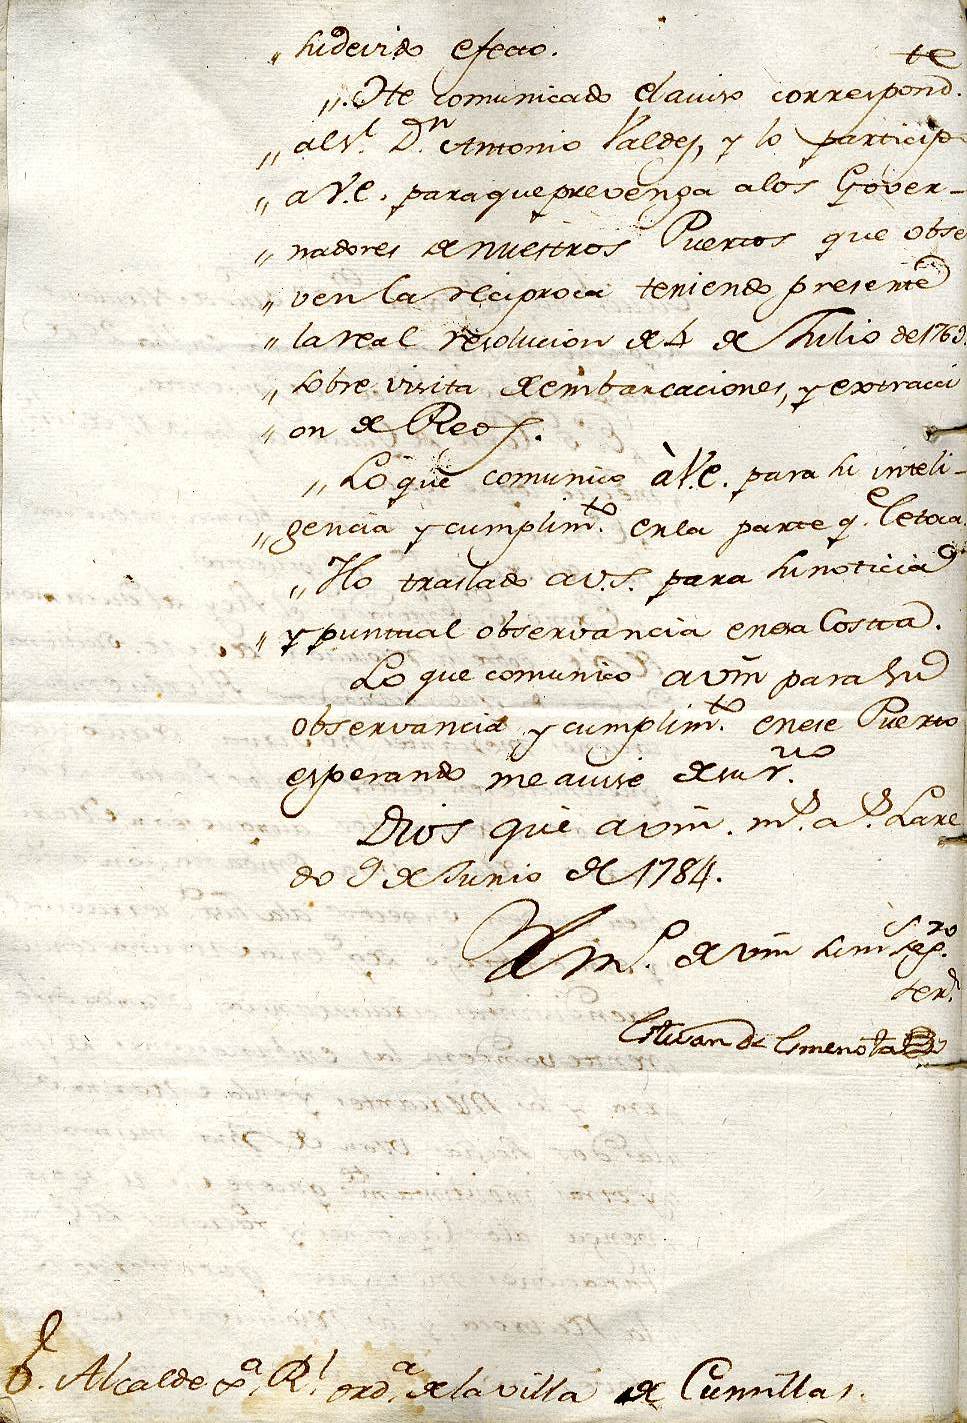 „ su devido efecto.
„ He comunicado el aviso correspond.te
„ al Sr. Dn. Antonio Valdes, y lo participo
„ a V.E. para que prevenga a los Gover-
„ nadores de nuestros Puertos que obser
„ ven la reciproca teniendo presente
„ la real resolucion de 4 de Julio de 1769.
„ sobre visita de embarcaciones, y extracci
„ on de Reos.
„ Lo que comunico à V.E. para su inteli-
„ gencia y cumplim.to en la parte q.e le toca.
„ Ylo traslado a V.S. para su noticia
„ y puntual observancia en esa Costa.
Lo que comunico a vm para su
observancia y cumplim.to en ese Puerto
esperando me avise de su r.vo
Dios gue a vm. m.s a.s Lare
do 9 de Junio de 1784.
B l m.o de vm su m s seg.ro
ser.r
Estevan de
S. Alcalde x.a R.l ord.a de la villa de Cumillas.